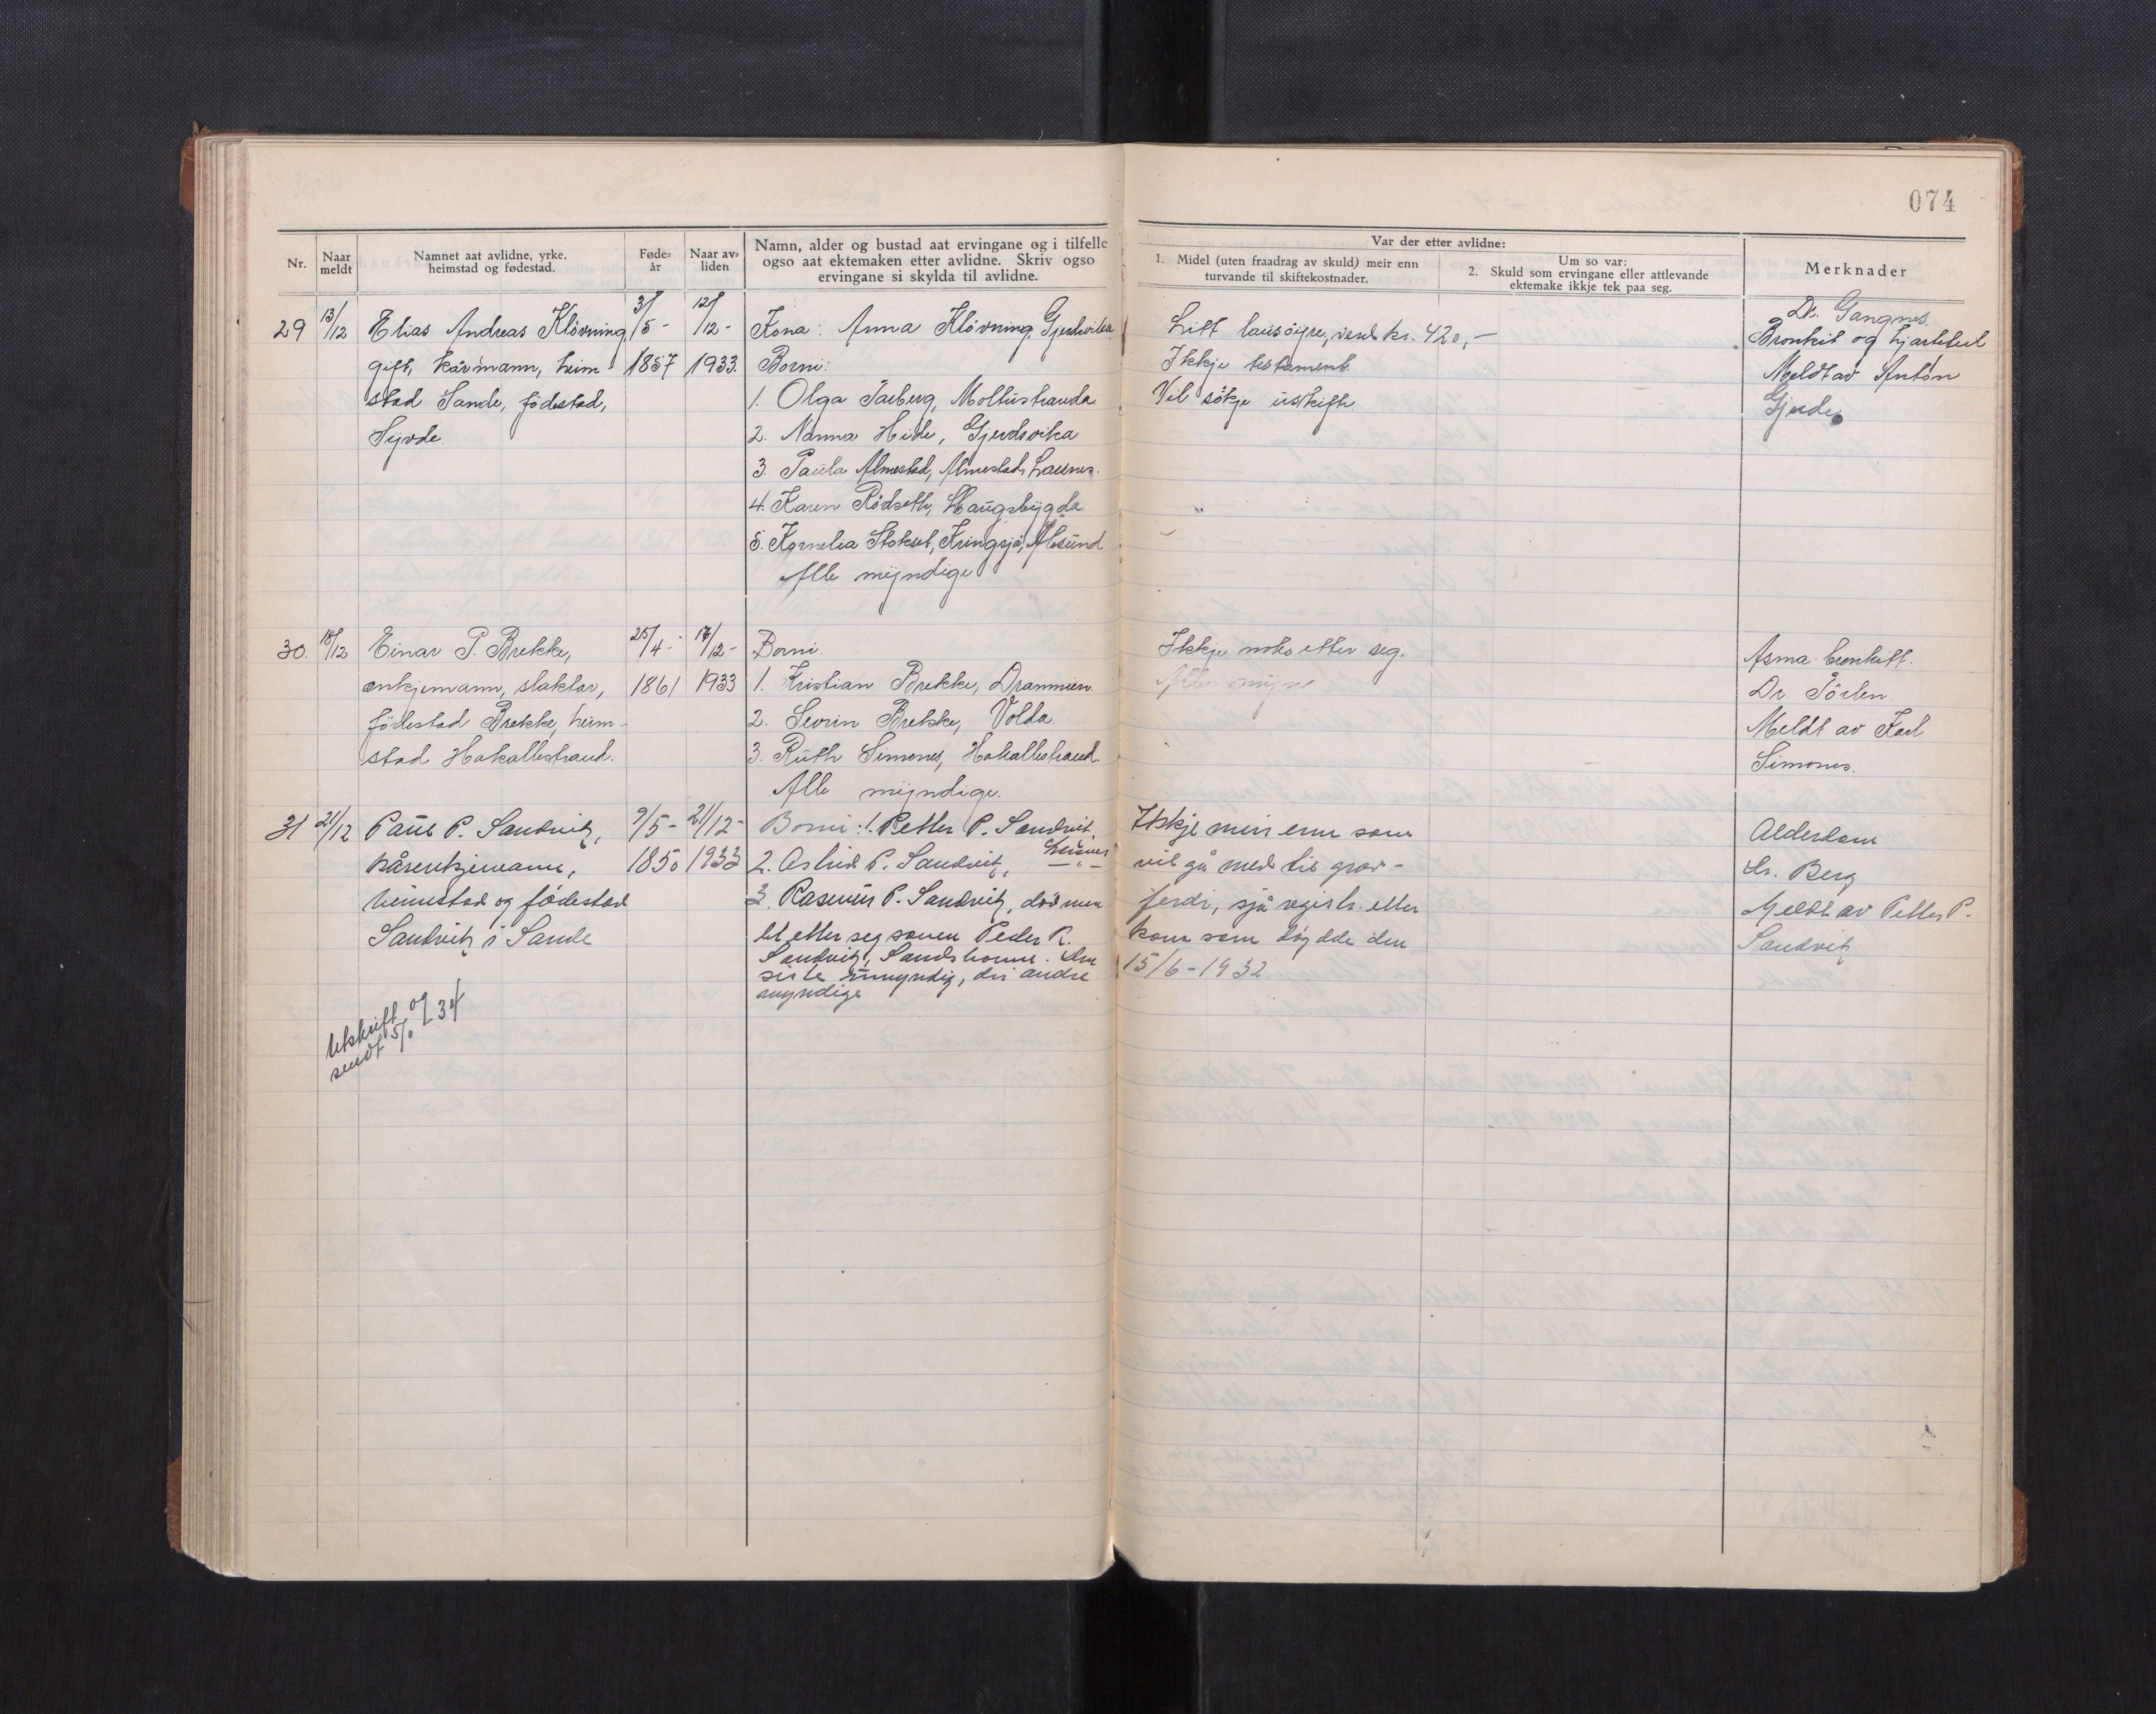 074
Nr.
Naar meldt
Namnet aat avlidne, yrke, heimstad og fødestad.
Føde-år
Naar av-liden
Namn, alder og bustad aat ervingane og i tilfelle
ogso aat ektemaken etter avlidne. Skriv ogso
ervingane si skylda til avlidne.
Var der etter avlidne:
1. Midel (uten fraadrag av skuld) meir enn
turvande til skiftekostnader.
Um so var:
2. Skuld som ervingane eller attlevande
ektemake ikkje tek paa seg.
Merknader
29 13/12 Elias Andreas Klövning,
gift, kårmann, heim
stad Sande, födestad,
Syvde
31/5-
1857
12/12-
1933.
Kona: Anna Klövning, Gjerdsvika
Borni:
1. Olga Tarberg, Moltustranda
2. Nanna Hide, Gjerdsvika
3. Paula Almestad, Almestad, Laurnes.
4. Karen Rödseth, Haugsbygda
5. Kornelia Stokset, Kringsjå, Ålesund
Alle myndige
Litt lausöyre, verd kr. 420,-
Ikkje testament
Vil sökje uskift
Dr. Gangnes.
Bronkit og hjartefeil
Meldt av Anton
Gjerde
30. 18/12 Einar P. Brekke,
enkjemann, slaktar,
födestad Brekke, heim-
stad Hakallestrand.
25/4-
1861
17/12-
1933
Borni.
1. Kristian Brekke, Drammen.
2. Sevrin Brekke, Volda.
3. Ruth Simones, Hakallestrand
Alle myndige.
Ikkje noko etter seg.
Asma-bronkitt.
Dr. Törlen.
Meldt av Karl
Simones.
31 21/12 Paul P. Sandvik,
kårenkjemann,
heimstad og födestad
Sandvik i Sande
9/5-
1850
21/12-
1933
Borni: 1. Petter P. Sandvik,
Larsnes
2. Astrid P. Sandvik, - " -
3. Rasmus P. Sandvik, död men
let etter seg sonen Peder R.
Sandvik, Sandshamn. Den
siste umyndig, dei andre
myndige
Ikkje meir enn som
vil gå med til grav-
ferdi, sjå registr. etter
kona som döydde den
15/6-1932
Alderdom
Dr. Berg
Meldt av Petter P.
Sandvik
Utskrift
sendt 5/ 34